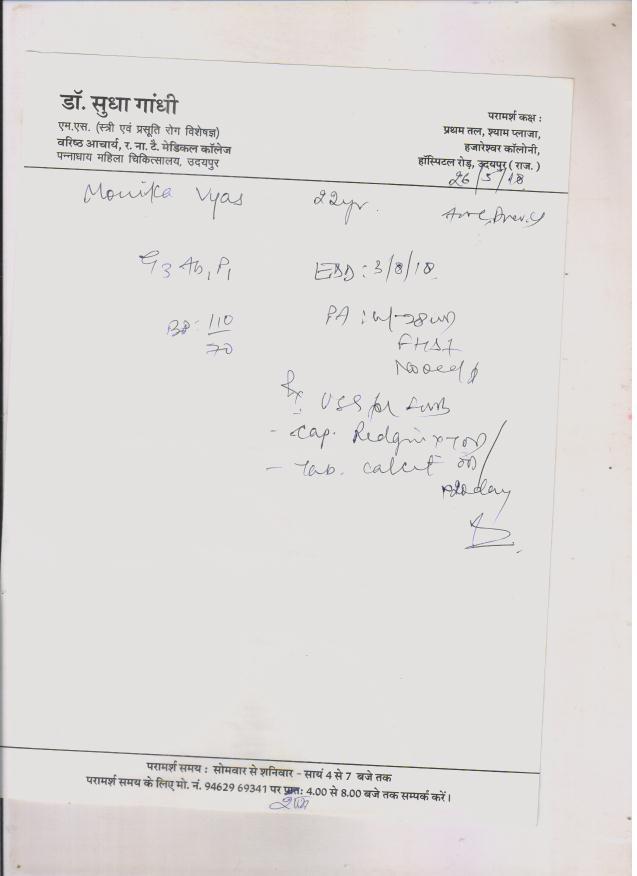 डॉ. सुधा गांधी
एम.एस. (स्त्री एवं प्रसूति रोग विशेषज्ञ)
वरिष्ठ आचार्य, र. ना. टै. मेडिकल कॉलेज
पन्नाधाय महिला चिकित्सालय, उदयपुर
परामर्श कक्ष :
प्रथम तल, श्याम प्लाजा,
हजारेश्वर कॉलोनी,
हॉस्पिटल रोड़, उदयपुर ( राज. )
26/5/18
Monika Vyas 22yr.
G3 Ab1 P1 EDD : 3/8/18
BP: 110/70
PA :
FHS
No oed
Rx
USG for
- Cap. Redgin x
- Tab. Calcit OD
x20day
परामर्श समय : सोमवार से शनिवार - सायं 4 से 7 बजे तक
परामर्श समय के लिए मो. नं. 94629 69341 पर प्रात: 4.00 से 8.00 बजे तक सम्पर्क करें।